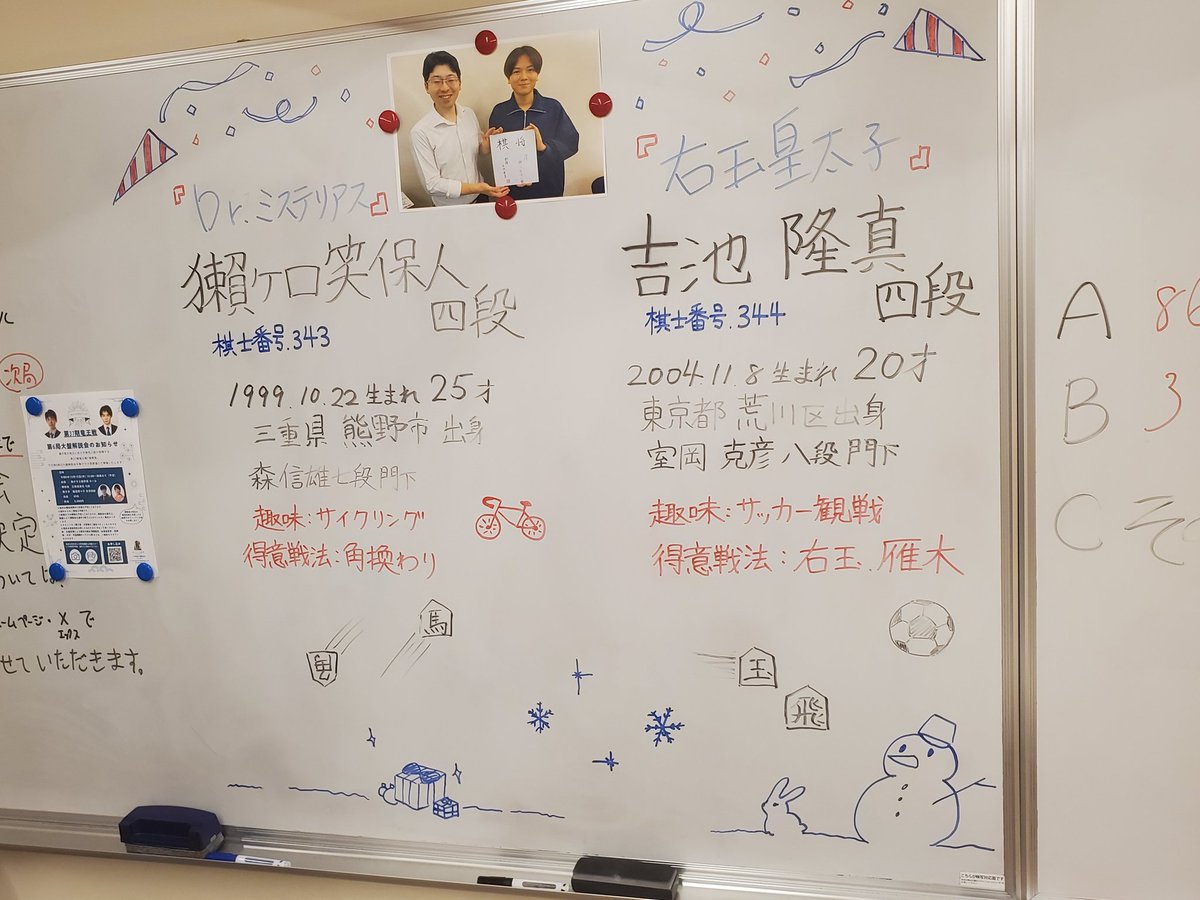 『Dr.ミステリアス』
獺ヶ口笑保人
四段
棋士番号.343
1999.10.22生まれ 25才
三重県 熊野市 出身
森信雄七段門下
趣味:サイクリング
得意戦法:角換わり
馬
『右玉皇太子』
吉池 隆真
四段
棋士番号.344
2004.11.8生まれ 20才
東京都 荒川区出身
室岡 克彦 八段門下
趣味:サッカー観戦
得意戦法:右玉.雁木
玉
飛
棋 将
ル
次局
で
会
決定
ついては、
ホームページ・Xで
エックス
せていただきます。
第37期竜王戦
第6局大盤解説会のお知らせ
A 86
B 3
C そ